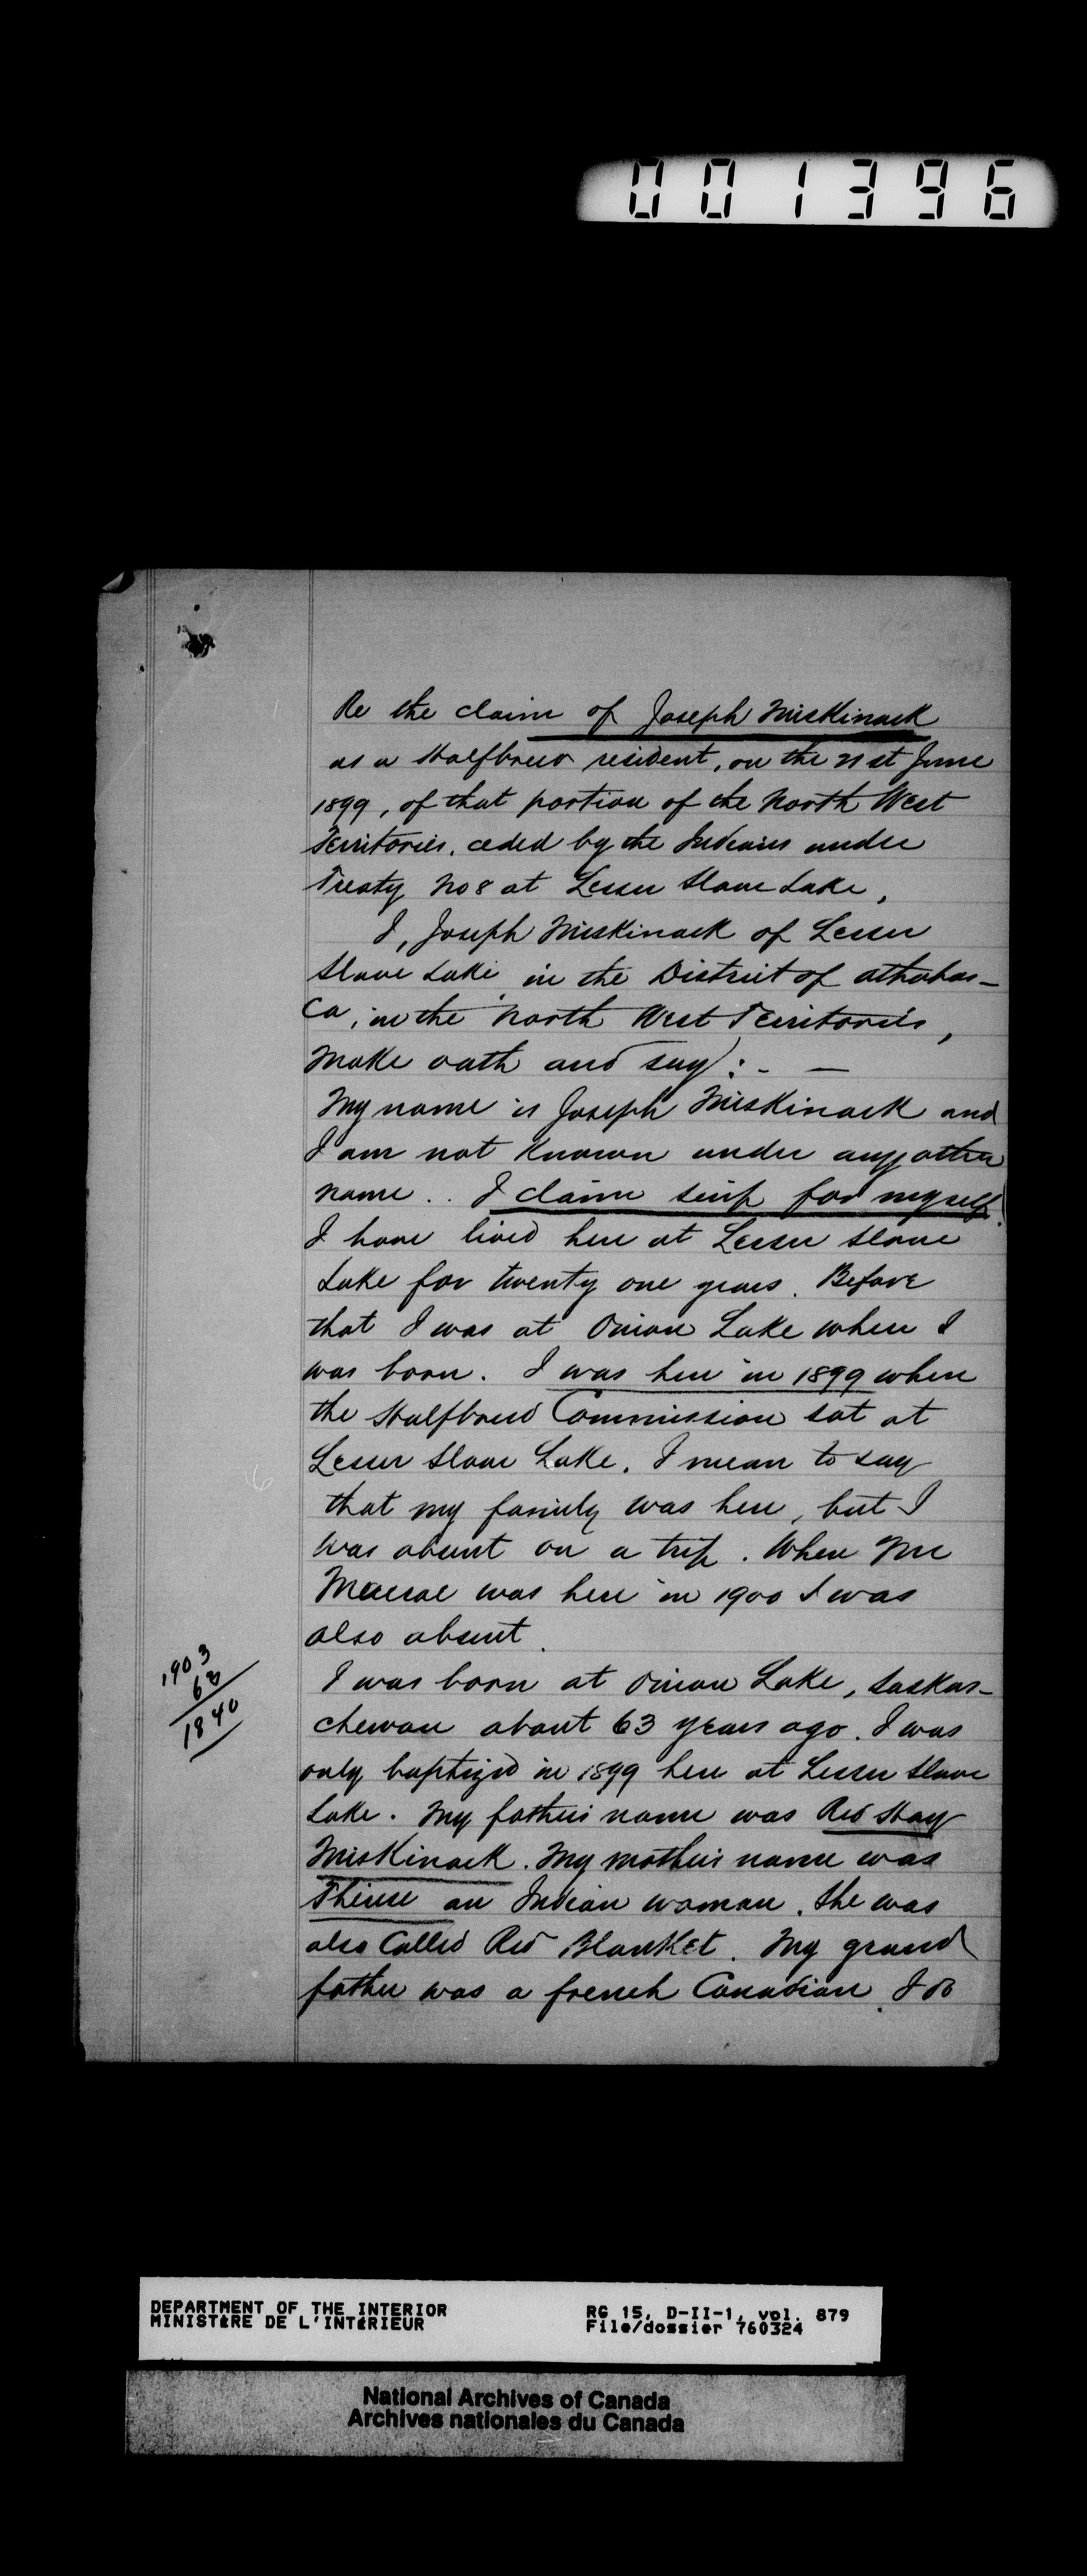 001396
Re the claim of Joseph Miskinack
as a Halfbreed resident, on the 21st June
1899, of that portion of the North West
Territories, ceded by the Indians under
Treaty No 8 at Lesser Slave Lake,
I, Joseph Miskinack of Lesser
Slave Lake in the District of Athabas-
ca, in the North West Territories,
make oath and say: - —
My name is Joseph Miskinack and
I am not known under any other
name.. I claim scrip for myself.
I have lived here at Lesser Slave
Lake for twenty one years. Before
that I was at Onion Lake where I
was born. I was here in 1899 when
the Halfbreed Commission sat at
Lesser Slave Lake. I mean to say
that my family was here, but I
was absent on a trip. When Mr
Macrae was here in 1900 I was
also absent.
1903
63
1840
I was born at Onion Lake, Saskas-
chewan about 63 years ago. I was
only baptized in 1899 here at Lesser Slave
Lake. My father's name was Red
Miskinack. My mother's name was
Therese an Indian woman. She was
also Called Red Blanket. My grand
father was a french Canadian. I do
DEPARTMENT OF THE INTERIOR
MINISTÈRE DE L'INTÉRIEUR
RG 15, D-II-1, vol. 879
File/dossier 760324
National Archives of Canada
Archives nationales du Canada